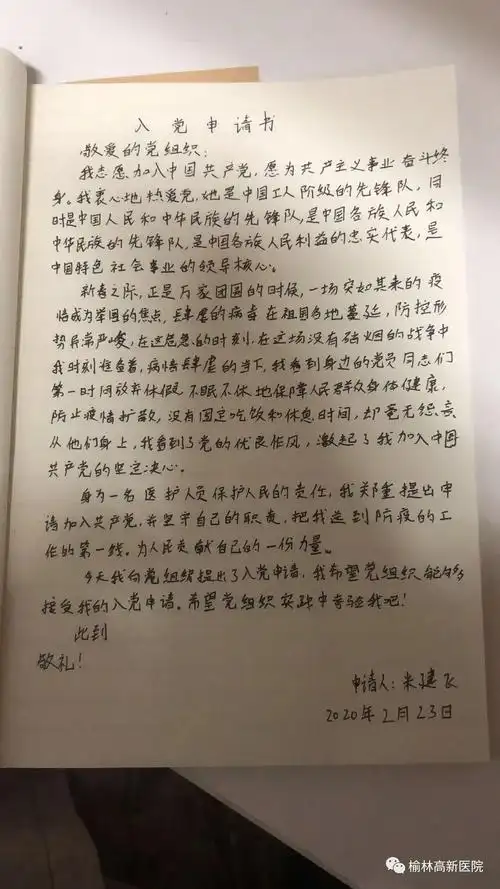 入党申请书
敬爱的党组织：
我志愿加入中国共产党，愿为共产主义事业奋斗终
身。我衷心地热爱党，她是中国工人阶级的先锋队，同
时是中国人民和中华民族的先锋队，是中国各族人民和
中华民族的先锋队，是中国各族人民利益的忠实代表，是
中国特色社会事业的领导核心。
新春之际，正是万家团圆的时候，一场突如其来的疫
情成为举国的焦点，肆虐的病毒在祖国各地蔓延，防控形
势异常严峻，在这危急的时刻，在这场没有硝烟的战争中
我时刻准备着，病情肆虐的当下，我看到身边的党员同志们
第一时间放弃休假，不眠不休地保障人民群众身体健康，
防止疫情扩散，没有固定吃饭和休息时间，却毫无怨言
从他们身上，我看到了党的优良作风，激起了我加入中国
共产党的坚定决心。
身为一名医护人员保护人民的责任，我郑重提出申
请加入共产党，并坚守自己的职责，把我送到防疫的工
作的第一线。为人民贡献自己的一份力量。
今天我向党组织提出了入党申请，我希望党组织能够
接受我的入党申请。希望党组织实践中考验我吧！
此到
敬礼！
申请人：米建飞
2020年2月23日
榆林高新医院